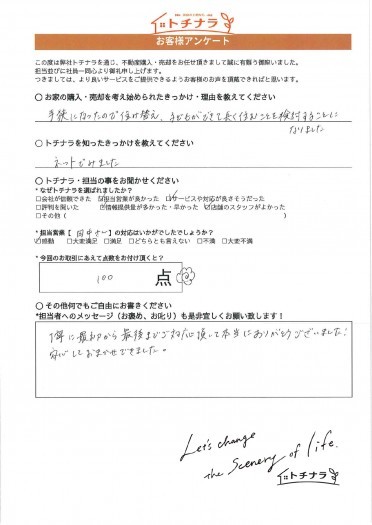 トチナラ
お客様アンケート
この度は弊社トチナラを通じ、不動産購入・売却をお任せ頂きまして誠に有難う御座いました。
担当並びに社員一同心より御礼申し上げます。
つきましては、より良いサービスをご提供できるようお客様のお声を頂戴できればと思います。
○ お家の購入・売却を考え始められたきっかけ・理由を教えてください
手狭になったので住み替え、子どもができて長く住むことを検討することに
なりました
○ トチナラを知ったきっかけを教えてください
ネットでみました
○ トチナラ・担当の事をお聞かせください
*なぜトチナラを選ばれましたか?
□会社が信頼できた ☑担当営業が良かった ☑サービスや対応が良さそうだった
□評判を聞いた ☑情報提供量が多かった・早かった ☑店舗のスタッフがよかった
□その他 ( )
*担当営業【 田中さん 】の対応はいかがでしたでしょうか?
☑感動 □大変満足 □満足 □どちらとも言えない □不満 □大変不満
*今回のお取引にあえて点数をお付け頂くと?
100 点
○ その他何でもご自由にお書きください
*担当者へのメッセージ(お褒め、お叱り)も是非宜しくお願い致します!
最初から最後までご対応頂して本当にありがとうございました!
安心しておまかせできました。
Let's change
the Scenery of life.
トチナラ